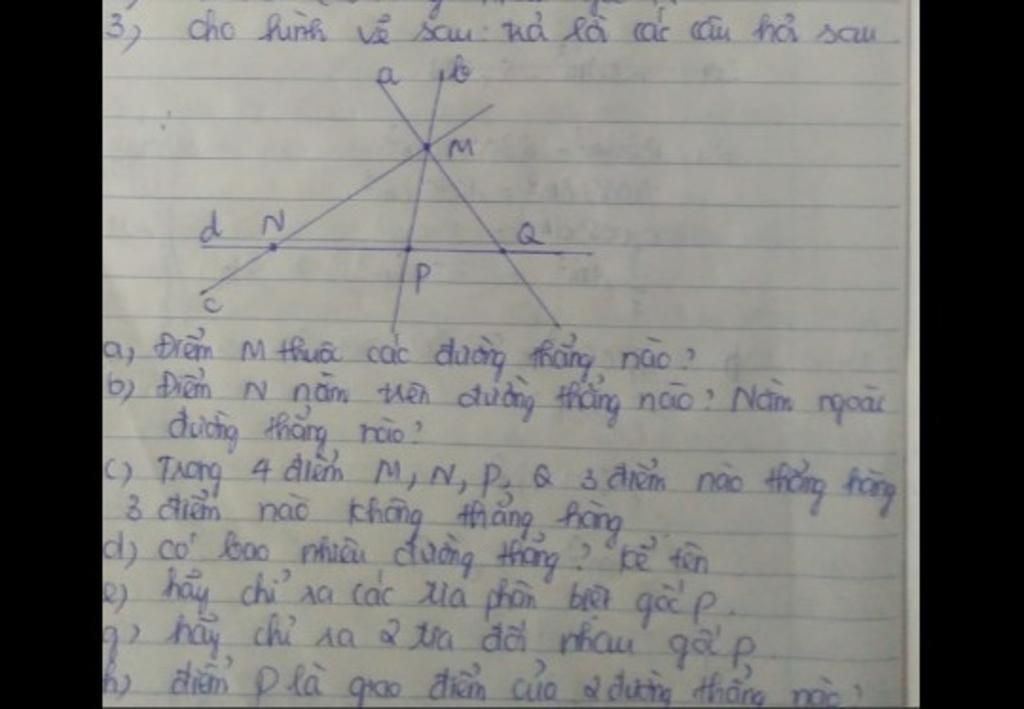 3) cho hình vẽ sau: trả lả các câu hỏi sau
a b
M
d N Q
P
c
a) Điểm M thuộc các đường thẳng nào?
b) Điểm N nằm trên đường thẳng nào? Nằm ngoài
đường thẳng nào?
c) Trong 4 điểm M, N, P, Q 3 điểm nào thẳng hàng
3 điểm nào không thẳng hàng
d) có bao nhiêu đường thẳng? kể tên
e) hãy chỉ ra các tia phân biệt gốc P.
g) hãy chỉ ra 2 tia đối nhau gốc P
h) điểm P là giao điểm của 2 đường thẳng nào?